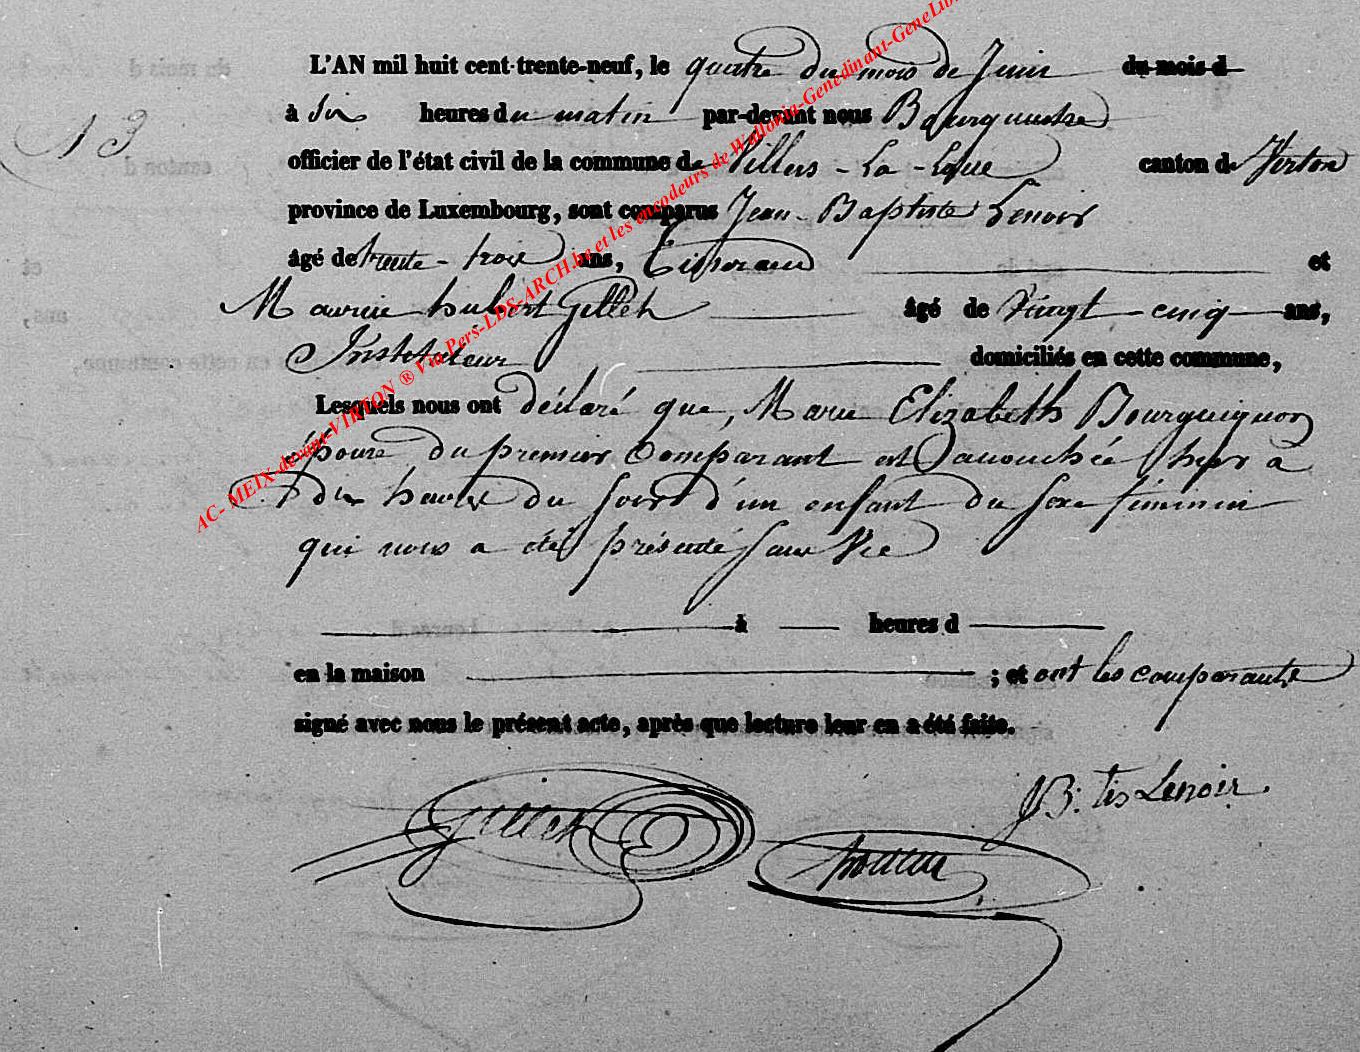 L'AN mil huit cent trente-neuf, le quatre du mois de Juin du mois d
13
à Six heures du matin par-devant nous Bourguemestre
officier de l'état civil de la commune de Villers-La-Loue canton de Virton
province de Luxembourg, sont comparus Jean-Baptiste Lenoir
âgé de trente-trois ans, Tisserand et
hubert Gillet âgé de Vingt-cinq ans,
Instituteur domiciliés en cette commune,
Lesquels nous ont déclaré que, Marie Elizabeth Bourguignon
épouse du premier Comparant est accouchée hyer à
dix heures du soir d'un enfant du sexe féminin
qui nous a été présenté sans Vie
à heures d
en la maison ; et ont les comparants
signé avec nous le présent acte, après que lecture leur en a été faite.
JB: tis Lenoir.
Gillet
AC- MEIX-devant-VIRTON ® Via Pers-LDS-ARCH.be et les encodeurs de Wallonia-Genedinant-GeneLib